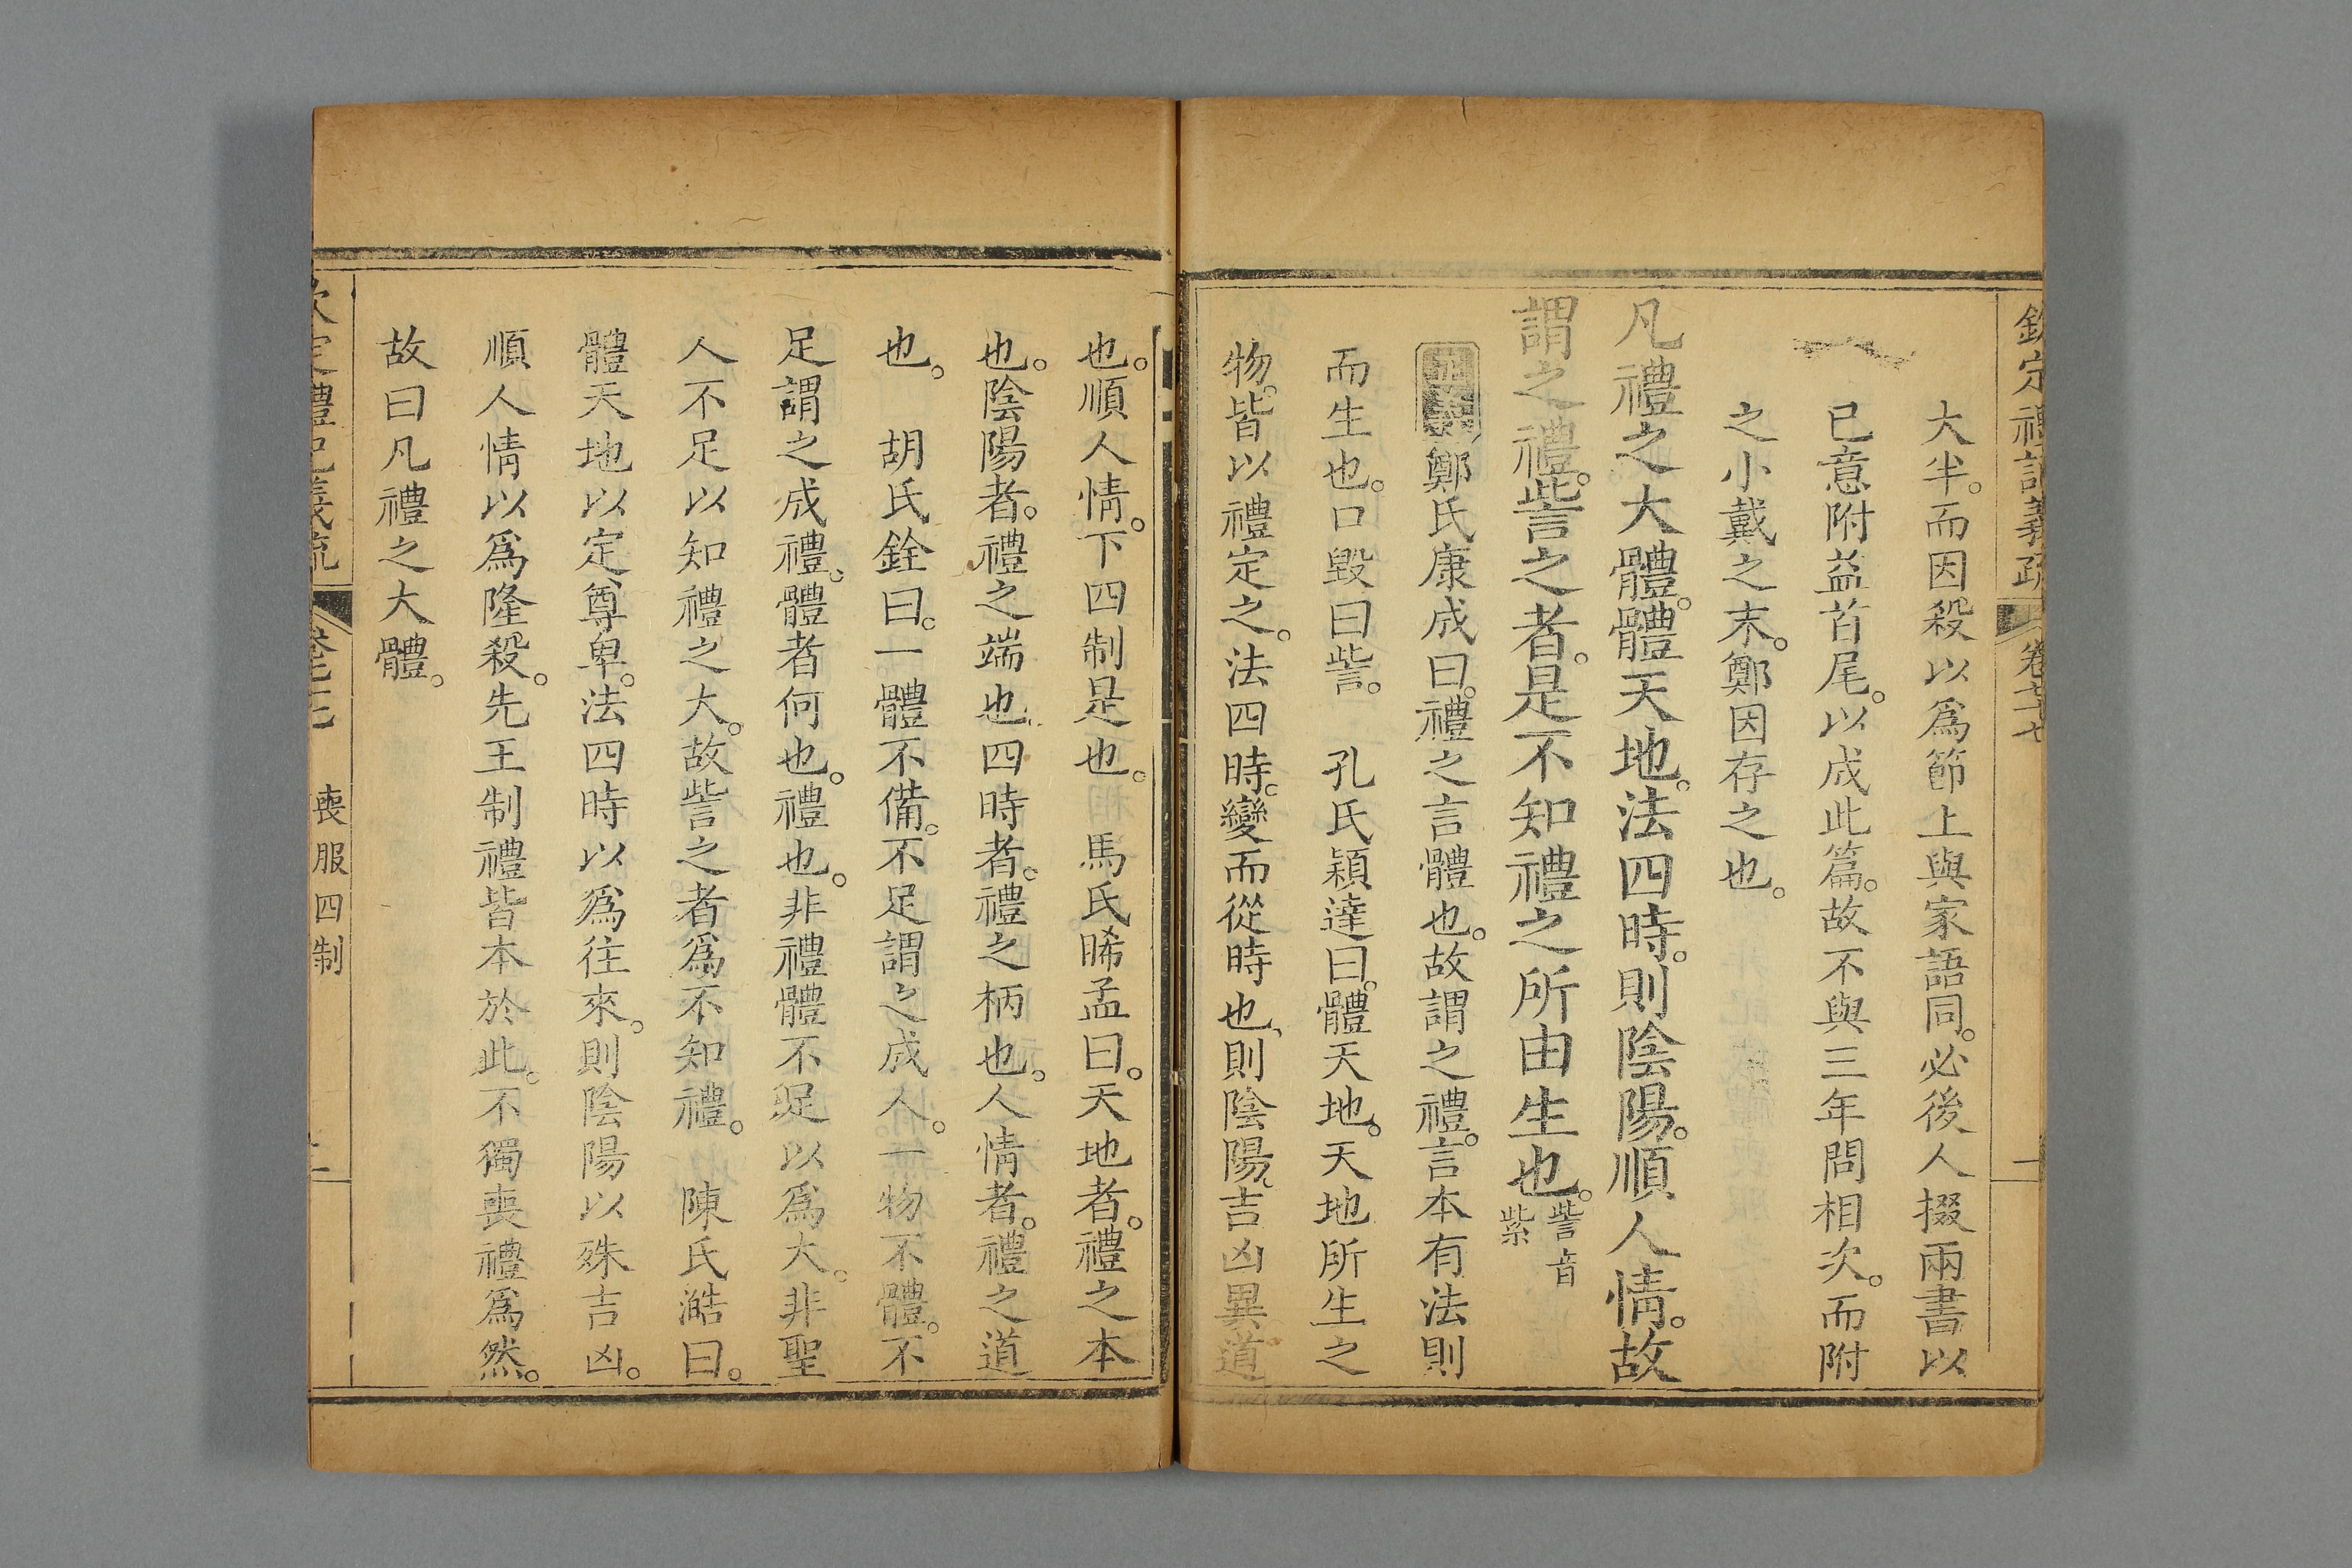 欽定禮記義疏 卷七十七
大半。而因殺以爲節上與家語同。必後人掇兩書以
已意附益首尾。以成此篇。故不與三年問相次。而附
之小戴之末。鄭因存之也。
凡禮之大體。體天地。法四時。則陰陽。順人情。故
謂之禮。訾之者。是不知禮之所由生也。訾音
紫
正義鄭氏康成曰。禮之言體也。故謂之禮。言本有法則
而生也。口毀曰訾。 孔氏穎達曰。體天地。天地所生之
物。皆以禮定之。法四時。變而從時也、則陰陽。吉凶異道
也。順人情。下四制是也。 馬氏睎孟曰。天地者。禮之本
也。陰陽者。禮之端也。四時者。禮之柄也。人情者。禮之道
也。 胡氏銓曰。一體不備。不足謂之成人。一物不體。不
足謂之成禮。體者何也。禮也。非禮體不足以爲大。非聖
人不足以知禮之大。故訾之者爲不知禮。 陳氏澔曰。
體天地以定尊卑。法四時以爲往來。則陰陽以殊吉凶。
順人情以爲隆殺。先王制禮皆本於此。不獨喪禮爲然。
故曰凡禮之大體。
欽定禮記義疏 卷七十七 喪服四制